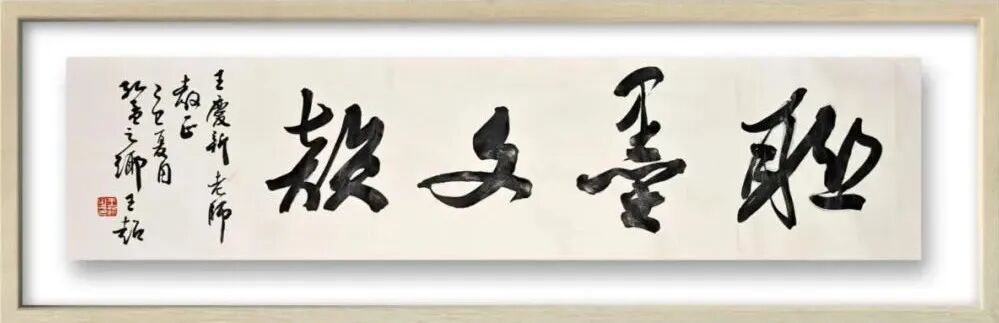 聯墨文
王慶新老師
教正
乙巳夏月
孔孟之鄉王超